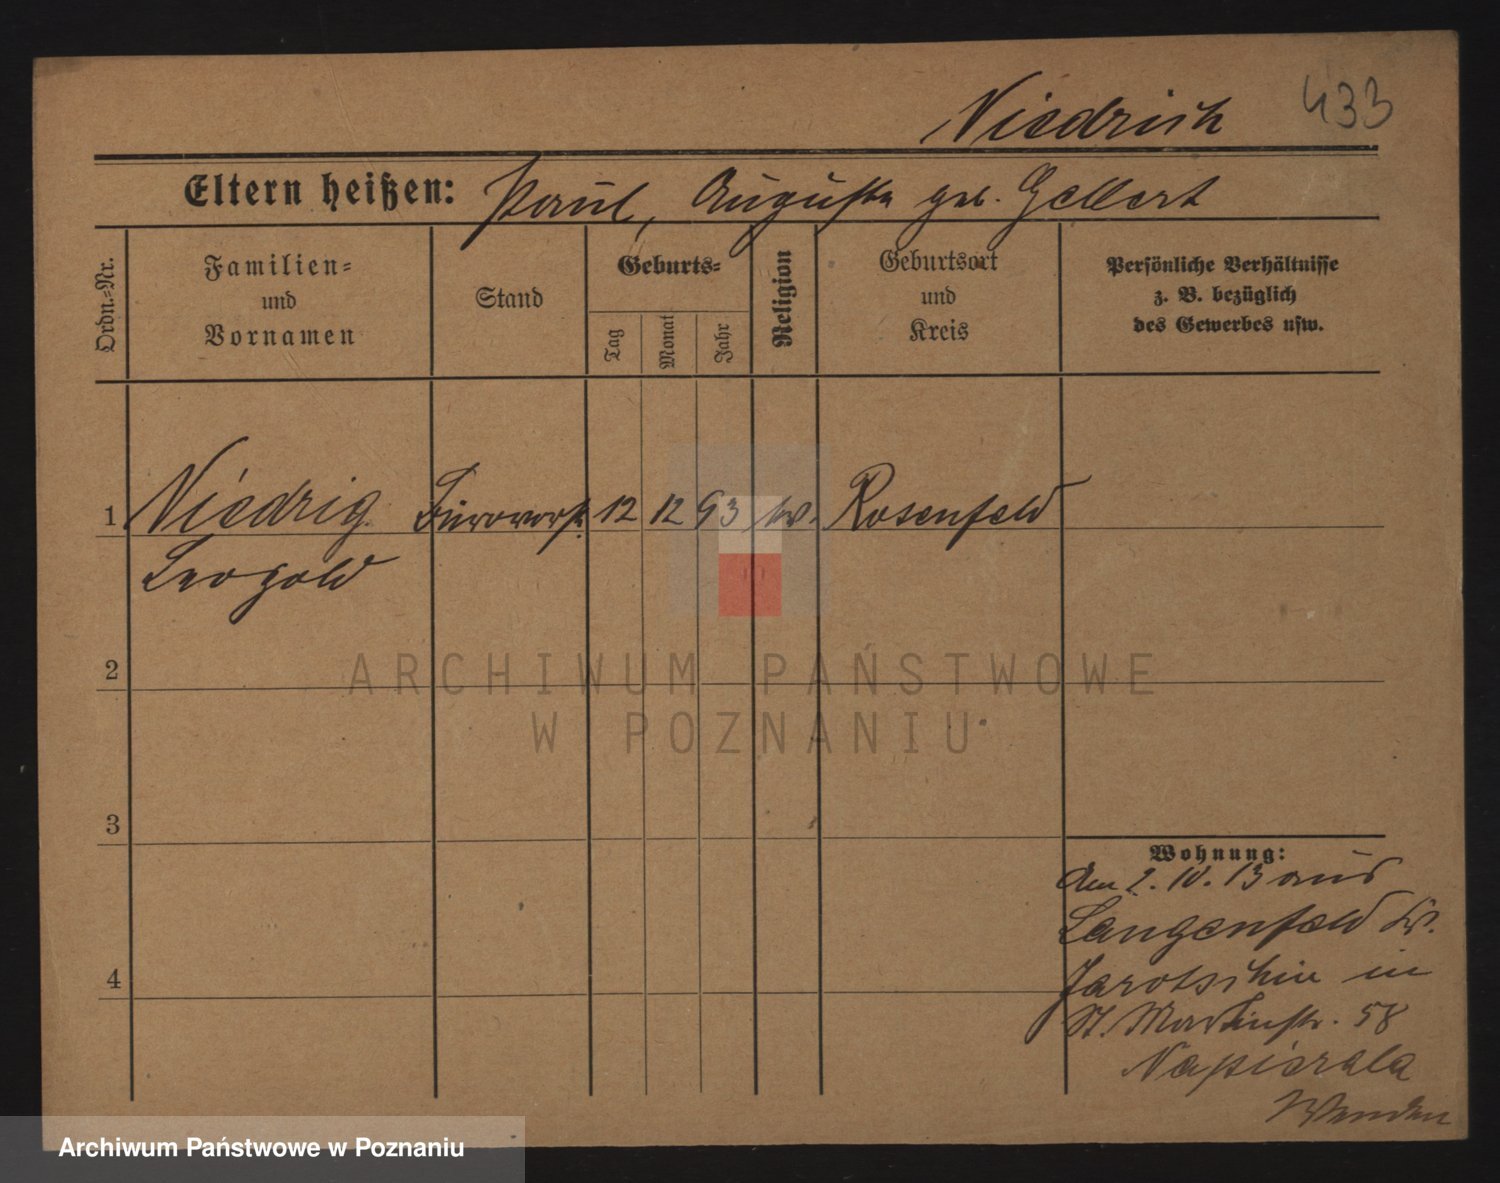 Niedrich 433
Eltern heißen: Paul, Auguste geb. Gellert
Ordn.-Nr.
Familien-
und
Vornamen
Stand
Geburts-
Tag
Monat
Jahr
Religion
Geburtsort
und
Kreis
Persönliche Verhältnisse
z. B. bezüglich
des Gewerbes usw.
1 Niedrig Bürovorst. 12 12 93 ev. Rosenfeld
Leopold
2
3
4
Wohnung:
Am 2. 10. 13 aus
Langenfeld Kr.
Jarotschin in
St. Martinstr. 58
Napierala
Wenden
ARCHIWUM PAŃSTWOWE
W POZNANIU
Archiwum Państwowe w Poznaniu